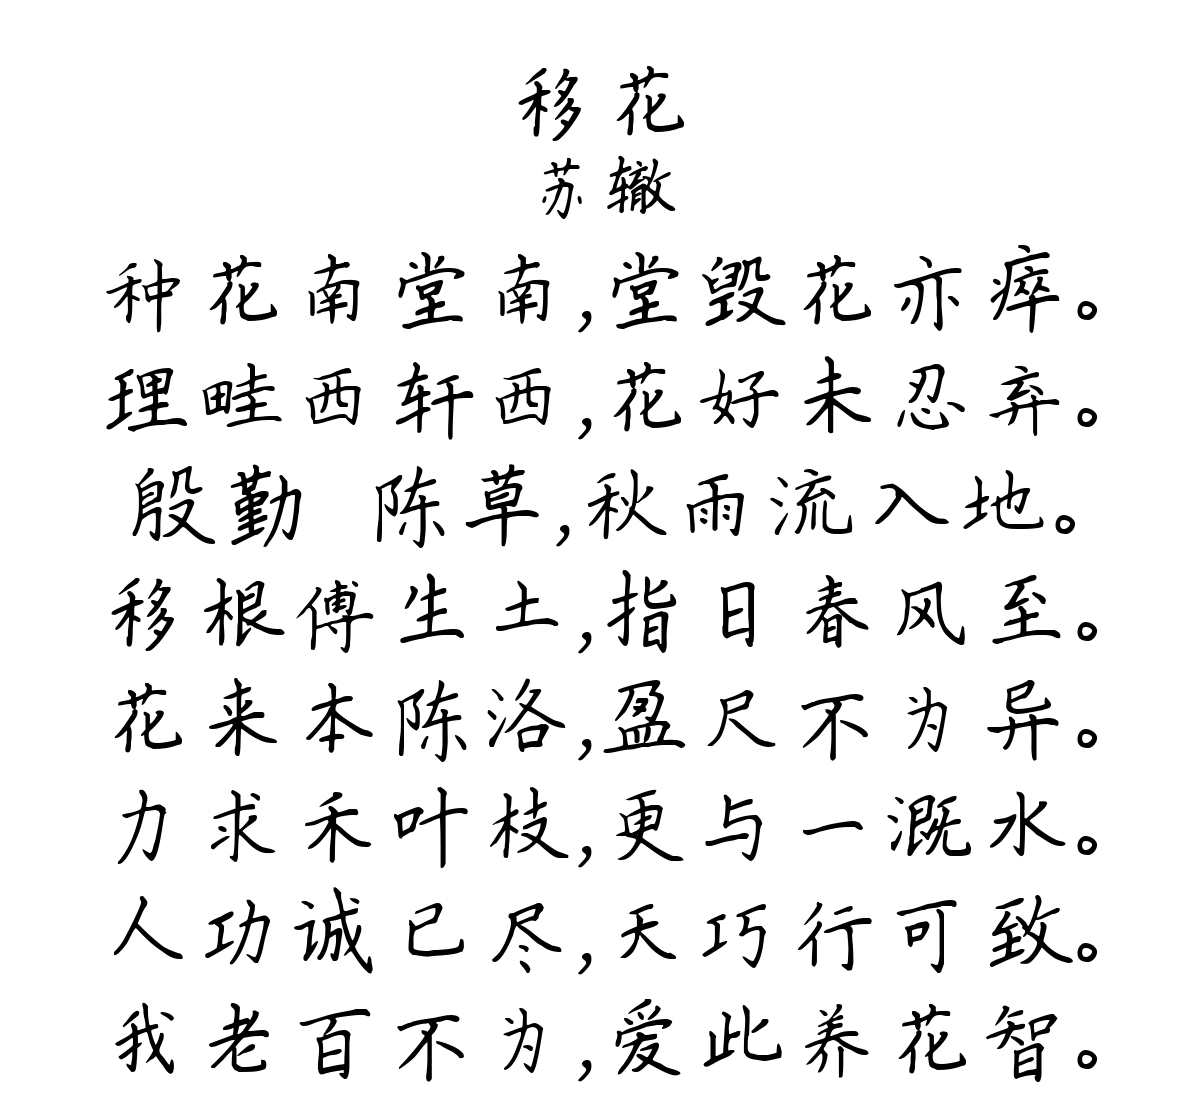 移花
苏辙
种花南堂南,堂毁花亦瘁。
理畦西轩西,花好未忍弃。
殷勤 陈草,秋雨流入地。
移根傅生土,指日春风至。
花来本陈洛,盈尺不为异。
力求禾叶枝,更与一溉水。
人功诚已尽,天巧行可致。
我老百不为,爱此养花智。